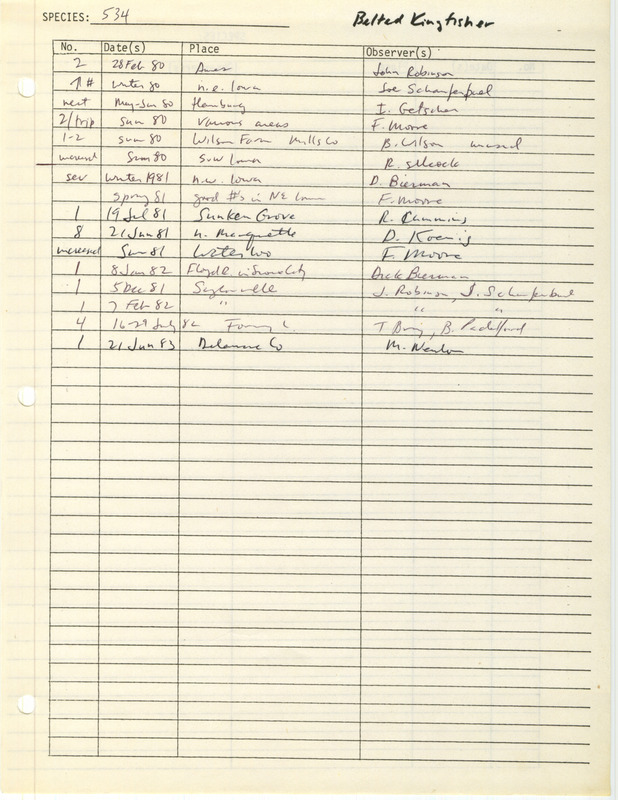 SPECIES: 534 Belted Kingfisher
No. Date(s) Place Observer(s)
2 28 Feb 80 Ames John Robinson
↑# winter 80 n.e. Iowa Joe Schaufenbuel
nest May-Jun 80 Hamburg I. Getscher
2/trip sum 80 various areas F. Moore
1-2 sum 80 Wilson Farm Mills Co B. Wilson
increased Sum 80 S.W Iowa R. Silcock
sev winter 1981 n.w. Iowa D. Bierman
spring 81 good #'s in NE Iowa F. Moore
1 19 Jul 81 Sunken Grove R. Cummins
8 21 Jun 81 n. Marquette D. Koenig
increased Sum 81 Waterloo F. Moore
1 8 Jan 82 Floyd R in Sioux City Dick Bierman
1 5 Dec 81 Saylorville J. Robinson, J. Schaufenbuel
1 7 Feb 82 " " "
4 16-29 July 82 T B. Padelford
1 21 Jun 83 Delaware Co M. Newlon